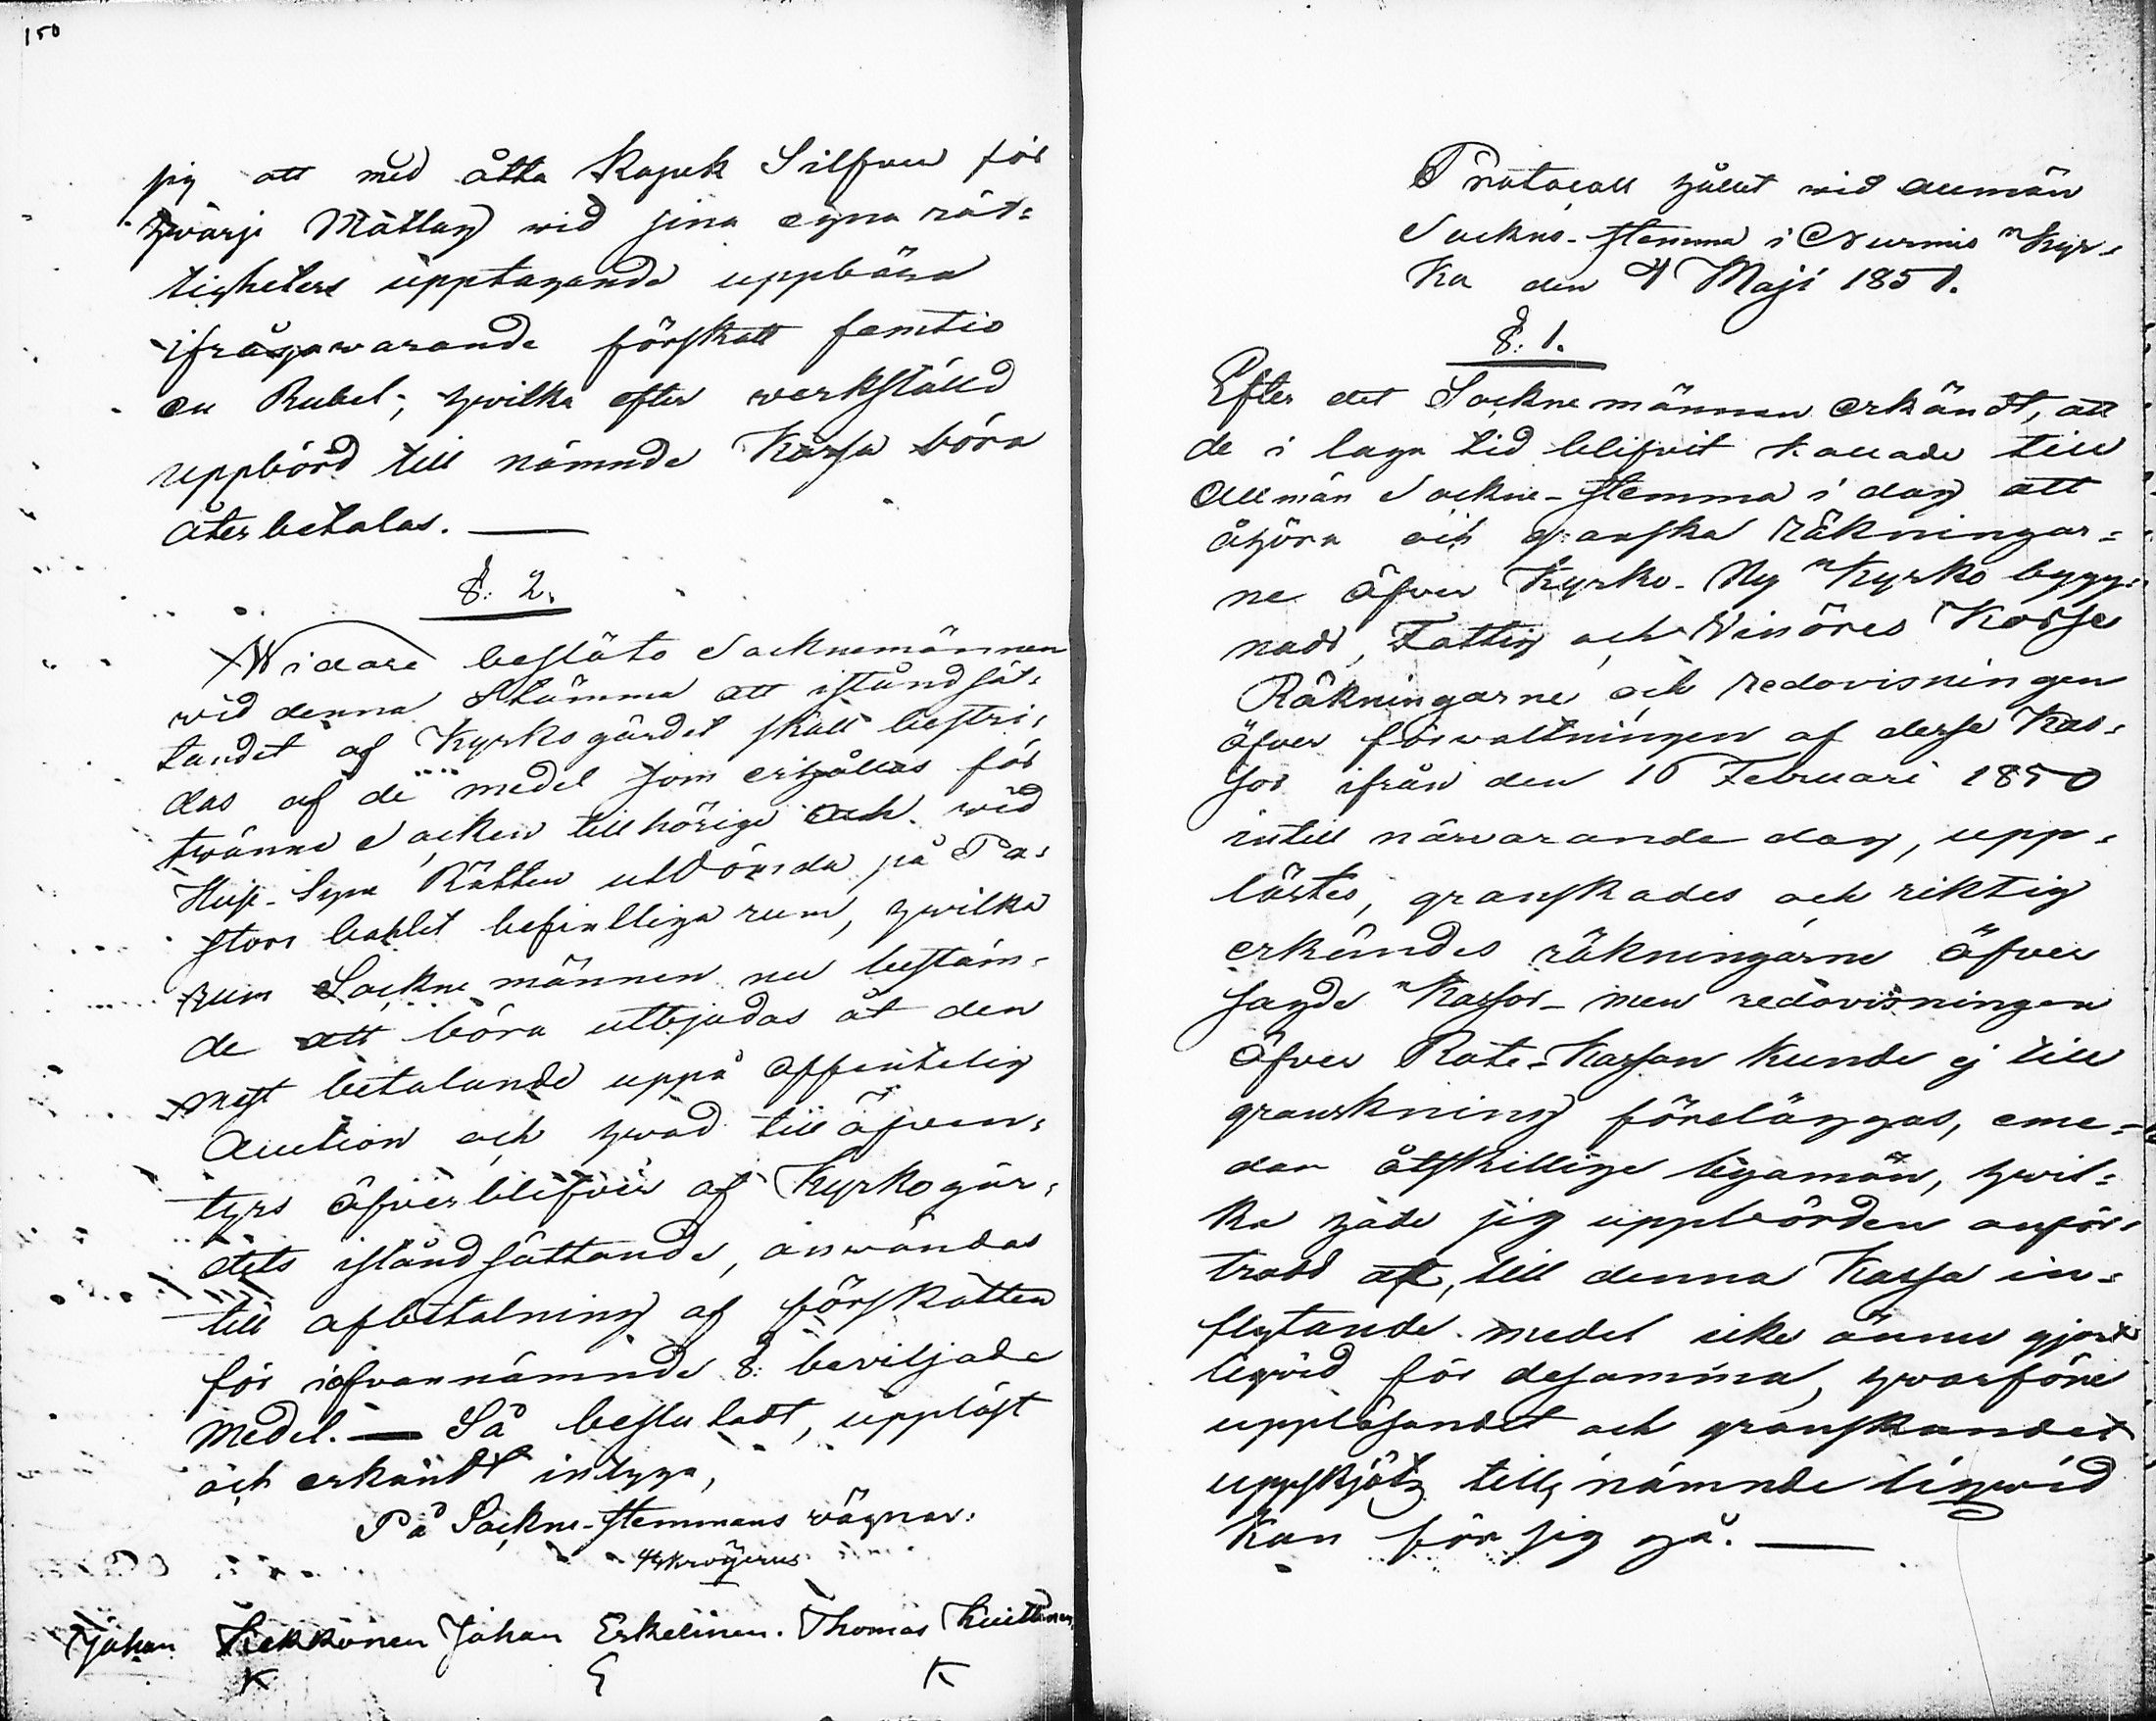 150
sig att med åtta Kopek Silfver för
hvarje Matlag wid sina egna rät=
tigheters upptagande uppbära
ifrågawarande förskott femtio
en Rubel, hvilka efter werkställd
uppbörd till nämnde Kassa böra
återbetalas. —
§: 2.
Widare beslöto Socknemännen
wid denna Stämma att iståndsät=
tandet af Kyrkogärdet skall bestri=
das af de medel som erhållas för
twänne Socken tillhörige och wid
Hus-Syne Rätten utdömda på Pa=
stors bohlet befintliga rum, hvilka
rum Sockne männen nu bestäm=
de att böra utbjudas åt den
mest betalande uppå offentelig
Auction och hwad till äfven=
tyrs öfverblifver af Kyrkogär=
dets iståndsättande, anwändas
till afbetalning af förskotten
för i ofvannämnde §: beviljade
medel. — Så beslutadt, uppläst
och erkändt intyga,
På Sockne-stemmans wägnar:
Krogerus
Johan Kekkonen Johan Erkelinen. Thomas Kuittinen
K E K
Protocoll hållit wid allmän
Sockne-stemma i Nurmis Kyr=
ka den 4 Maji 1851.
§: 1.
Efter det Socknemännen erkändt, att
de i laga tid blifvit kallade till
Allmän Sockne-stemma i dag att
åhöra och granska räkningar=
ne öfver Kyrko- Ny Kyrko bygg=
nads, Fattig och Winöres Kasse
Räkningarne och redovisningen
öfver förvaltningen af desse Kas=
sor ifrån den 16 Februari 1850
intill närvarande dag, upp=
lästes, granskades och riktig
erkändes räkningarne öfver
sagde Kassor - men redovisningen
öfver Rote-Kassan kunde ej till
granskning föreläggas, eme=
dan åtskillige legamän, hvil=
ka hade sig uppbörden anför=
trodd af, till denna Kassa in=
flytande medel icke ännu gjort
liqvid för desamma, hvarföre
uppläsandet och granskandet
uppskjöts tills nämnde liqvid
kan för sig gå. —